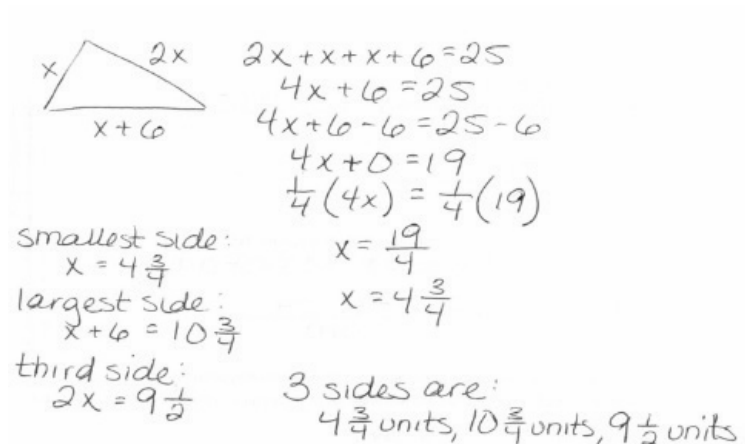 x
2x
x+6
2x+x+x+6=25
4x+6=25
4x+6-6=25-6
4x+0=19
1/4(4x)=1/4(19)
x=19/4
x=4 3/4
smallest side:
x=4 3/4
largest side:
x+6=10 3/4
third side:
2x=9 1/2
3 sides are:
4 3/4 units, 10 3/4 units, 9 1/2 units